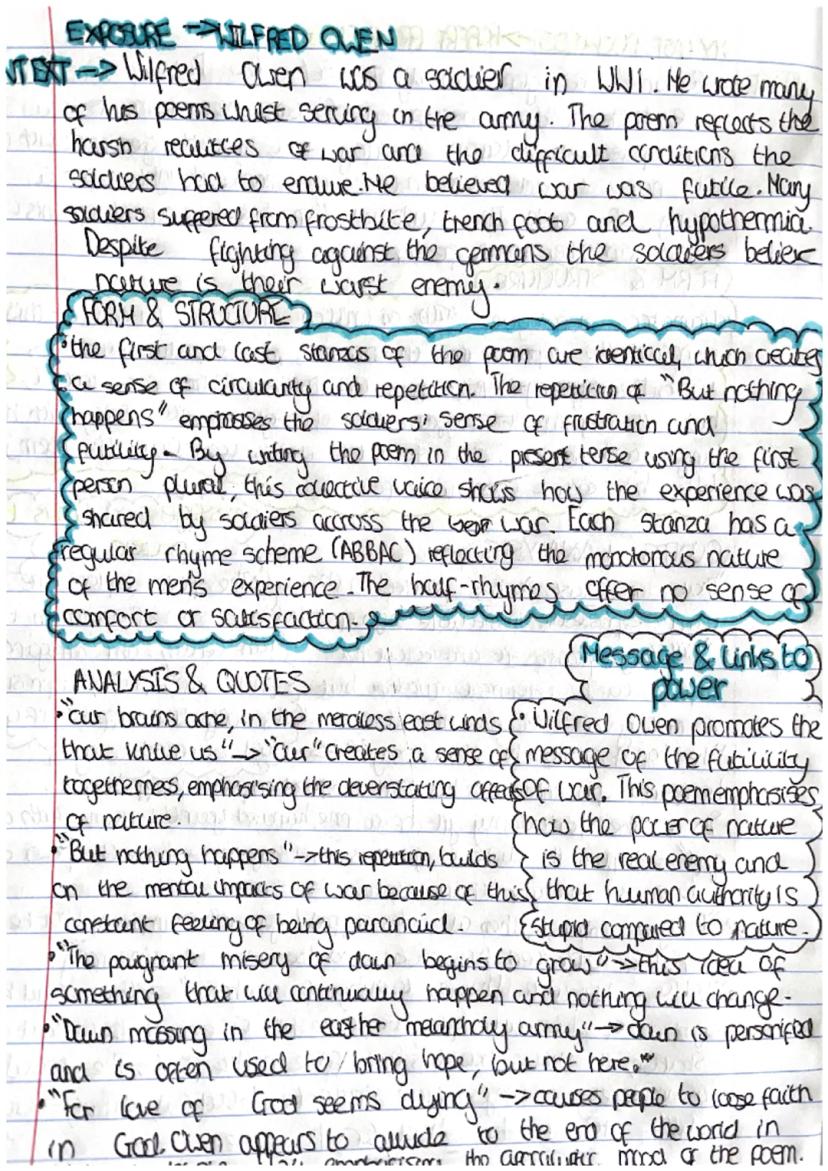 EXPOSURE → WILFRED OWEN
NTEXT → Wilfred Owen was a soldier in WW1. He wrote many
of his poems whilst serving in the army. The poem reflects the
harsh realities of war and the difficult conditions the
soldiers had to endure. He believed war was futile. Many
soldiers suffered from frostbite, trench foot and hypothermia.
Despite fighting against the germans the soldiers believe
nature is their worst enemy.
FORM & STRUCTURE
• the first and last stanzas of the poem are identical, which creates
a sense of circularity and repetition. The repetition of "But nothing
happens" emphasses the soldiers' sense of frustration and
futility. By writing the poem in the present tense using the first
person plural, this collective voice shows how the experience was
shared by soldiers accross the war. Each stanza has a
regular rhyme scheme (ABBAC) reflecting the monotonous nature
of the men's experience. The half-rhymes offer no sense of
comfort or satisfaction.
ANALYSIS & QUOTES
• "our brains ache, in the merciless east winds
that knive us" → "our" creates a sense of
togetherness, emphasising the deverstating affects
of nature.
• "But nothing happens" → this repetition, builds
on the mental impacts of war because of this
constant feeling of being paranoid.
Message & links to
power
• Wilfred Owen promotes the
message of the futility
of war. This poem emphasises
how the power of nature
is the real enemy and
that human authority is
stupid compared to nature.
• "The poignant misery of dawn begins to grow" → this idea of
something that will continually happen and nothing will change.
• "Dawn massing in the east her melancholy army" → dawn is personified
and is often used to bring hope, but not here."
• "For love of God seems dying" → causes people to loose faith
in God. Owen appears to allude to the end of the world in
emphasising the apocalyptic mood of the poem.